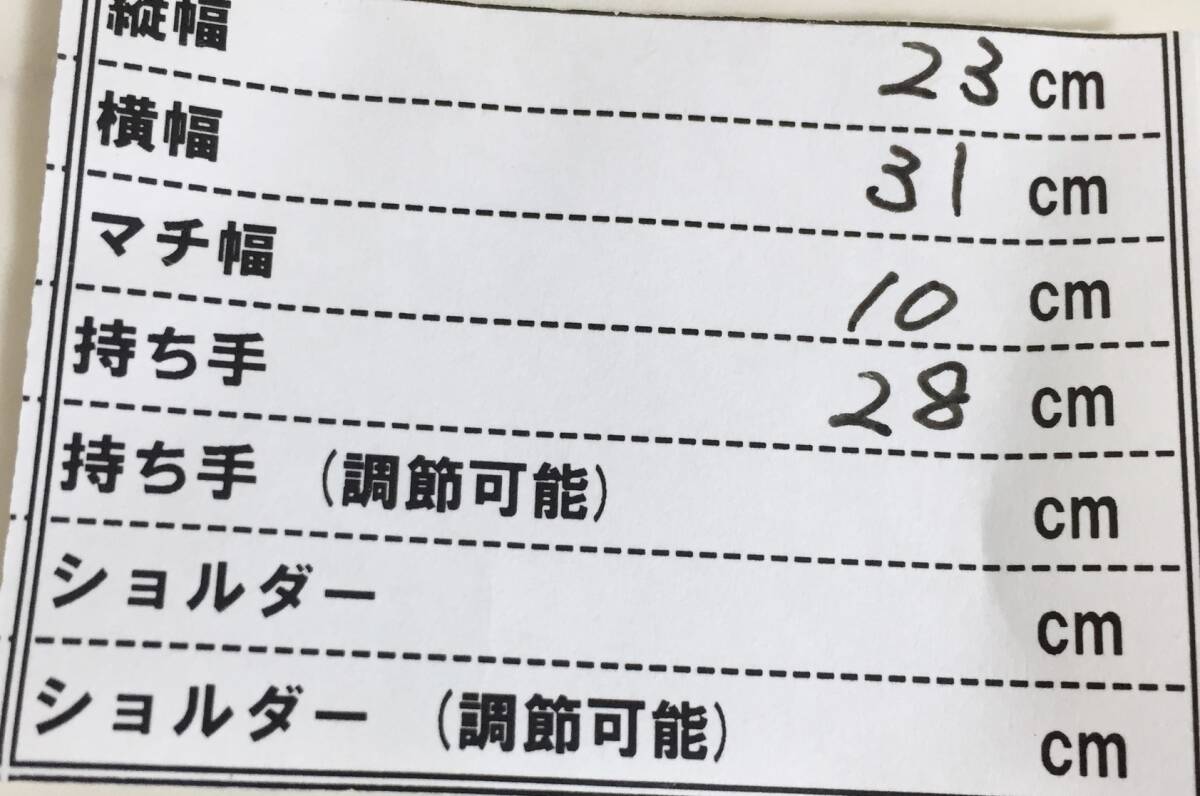 縦幅 23 cm
横幅 31 cm
マチ幅 10 cm
持ち手 28 cm
持ち手 (調節可能) cm
ショルダー cm
ショルダー (調節可能) cm